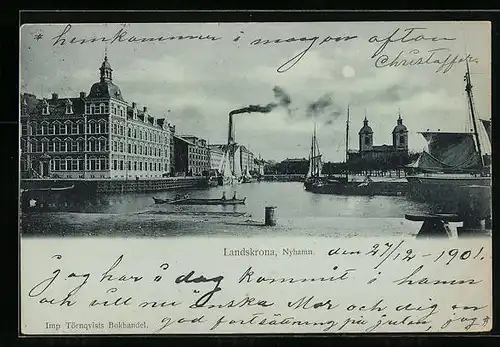 * hemkommer i morgon afton
Christoffer.
Landskrona, Nyhamn.
den 27/12-1901.
jag har i dag kommit i hamn
och vill nu önska Mor och dig en
god fortsättning på julen, jag *
Imp Törnqvists Bokhandel.